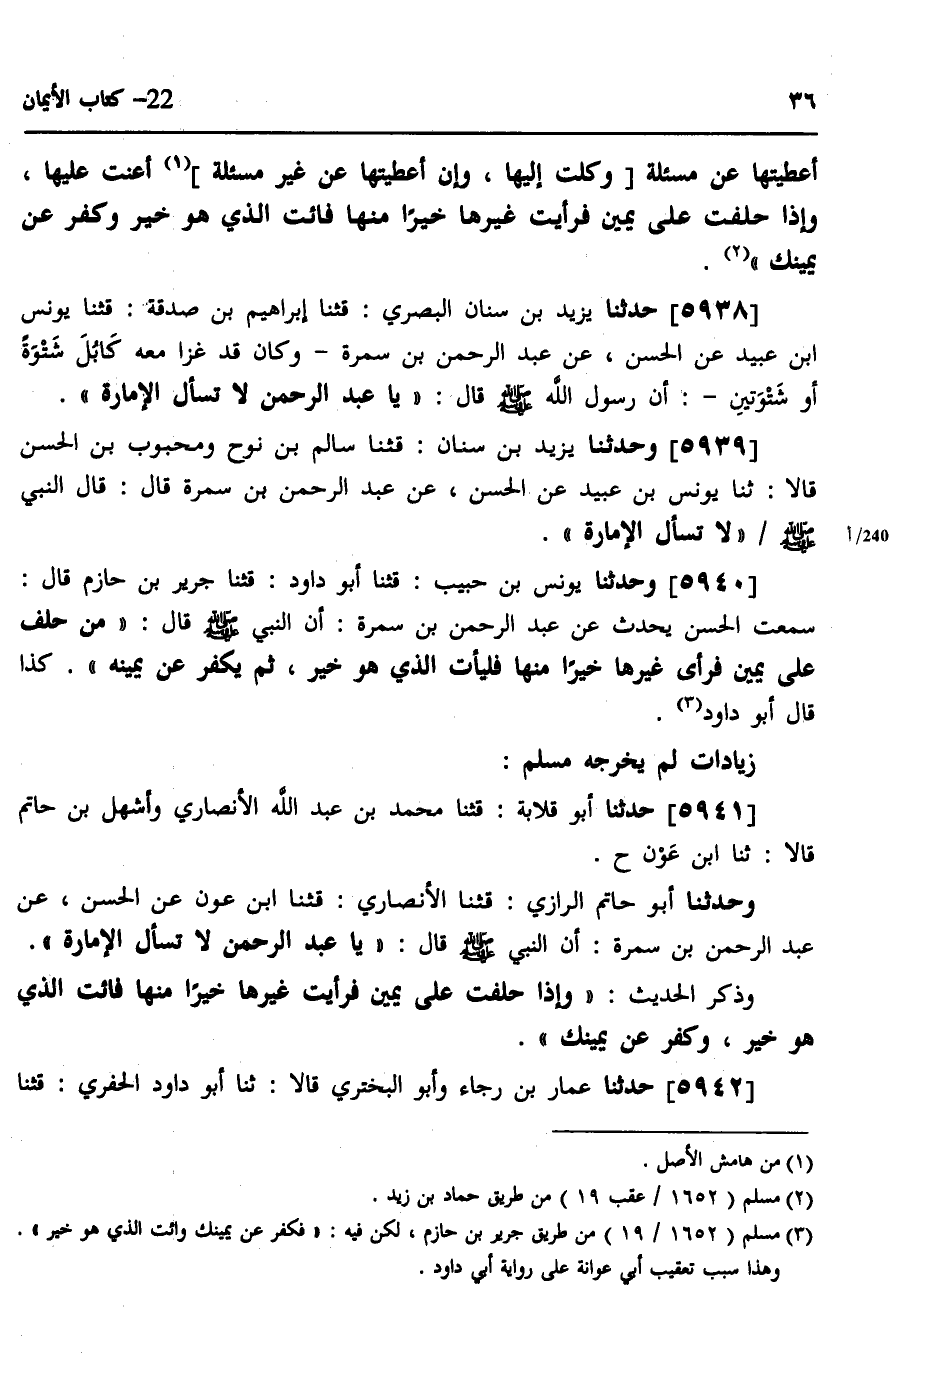 ٣٦ 22– كتاب الأيمان
أعطيتها عن مسئلة [ وكلت إليها ، وإن أعطيتها عن غير مسئلة ](١) أعنت عليها ،
وإذا حلفت على يمين فرأيت غيرها خيرًا منها فائت الذي هو خير وكفر عن
يمينك »(٢) .
[٥٩٣٨] حدثنا يزيد بن سنان البصري : قثنا إبراهيم بن صدقة : قثنا يونس
ابن عبيد عن الحسن ، عن عبد الرحمن بن سمرة – وكان قد غزا معه كَابُلَ شَتْوَةً
أو شَتْوَتينِ – : أن رسول اللَّه ﷺ قال : « يا عبد الرحمن لا تسأل الإمارة » .
[٥٩٣٩] وحدثنا يزيد بن سنان : قثنا سالم بن نوح ومحبوب بن الحسن
قالا : ثنا يونس بن عبيد عن الحسن ، عن عبد الرحمن بن سمرة قال : قال النبي
ﷺ / « لا تسأل الإمارة » . 240/أ
[٥٩٤٠] وحدثنا يونس بن حبيب : قثنا أبو داود : قثنا جرير بن حازم قال :
سمعت الحسن يحدث عن عبد الرحمن بن سمرة : أن النبي ﷺ قال : « من حلف
على يمين فرأى غيرها خيرًا منها فليأت الذي هو خير ، ثم يكفر عن يمينه » . كذا
قال أبو داود(٣) .
زيادات لم يخرجه مسلم :
[٥٩٤١] حدثنا أبو قلابة : قثنا محمد بن عبد اللَّه الأنصاري وأشهل بن حاتم
قالا : ثنا ابن عَوْن ح .
وحدثنا أبو حاتم الرازي : قثنا الأنصاري : قثنا ابن عون عن الحسن ، عن
عبد الرحمن بن سمرة : أن النبي ﷺ قال : « يا عبد الرحمن لا تسأل الإمارة » .
وذكر الحديث : « وإذا حلفت على يمين فرأيت غيرها خيرًا منها فائت الذي
هو خير ، وكفر عن يمينك » .
[٥٩٤٢] حدثنا عمار بن رجاء وأبو البختري قالا : ثنا أبو داود الحفري : قثنا
(١) من هامش الأصل .
(٢) مسلم ( ١٦٥٢ / عقب ١٩ ) من طريق حماد بن زيد .
(٣) مسلم ( ١٦٥٢ / ١٩ ) من طريق جرير بن حازم ، لكن فيه : « فكفر عن يمينك وائت الذي هو خير » .
وهذا سبب تعقيب أبي عوانة على رواية أبي داود .